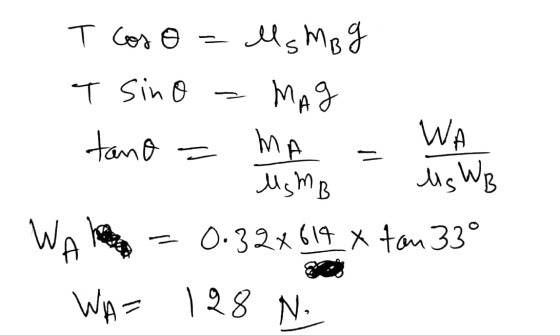 T cos θ = μs mB g
T sin θ = mA g
tan θ = mA / μs mB = WA / μs WB
WA = 0.32 × 614 × tan 33°
WA = 128 N.